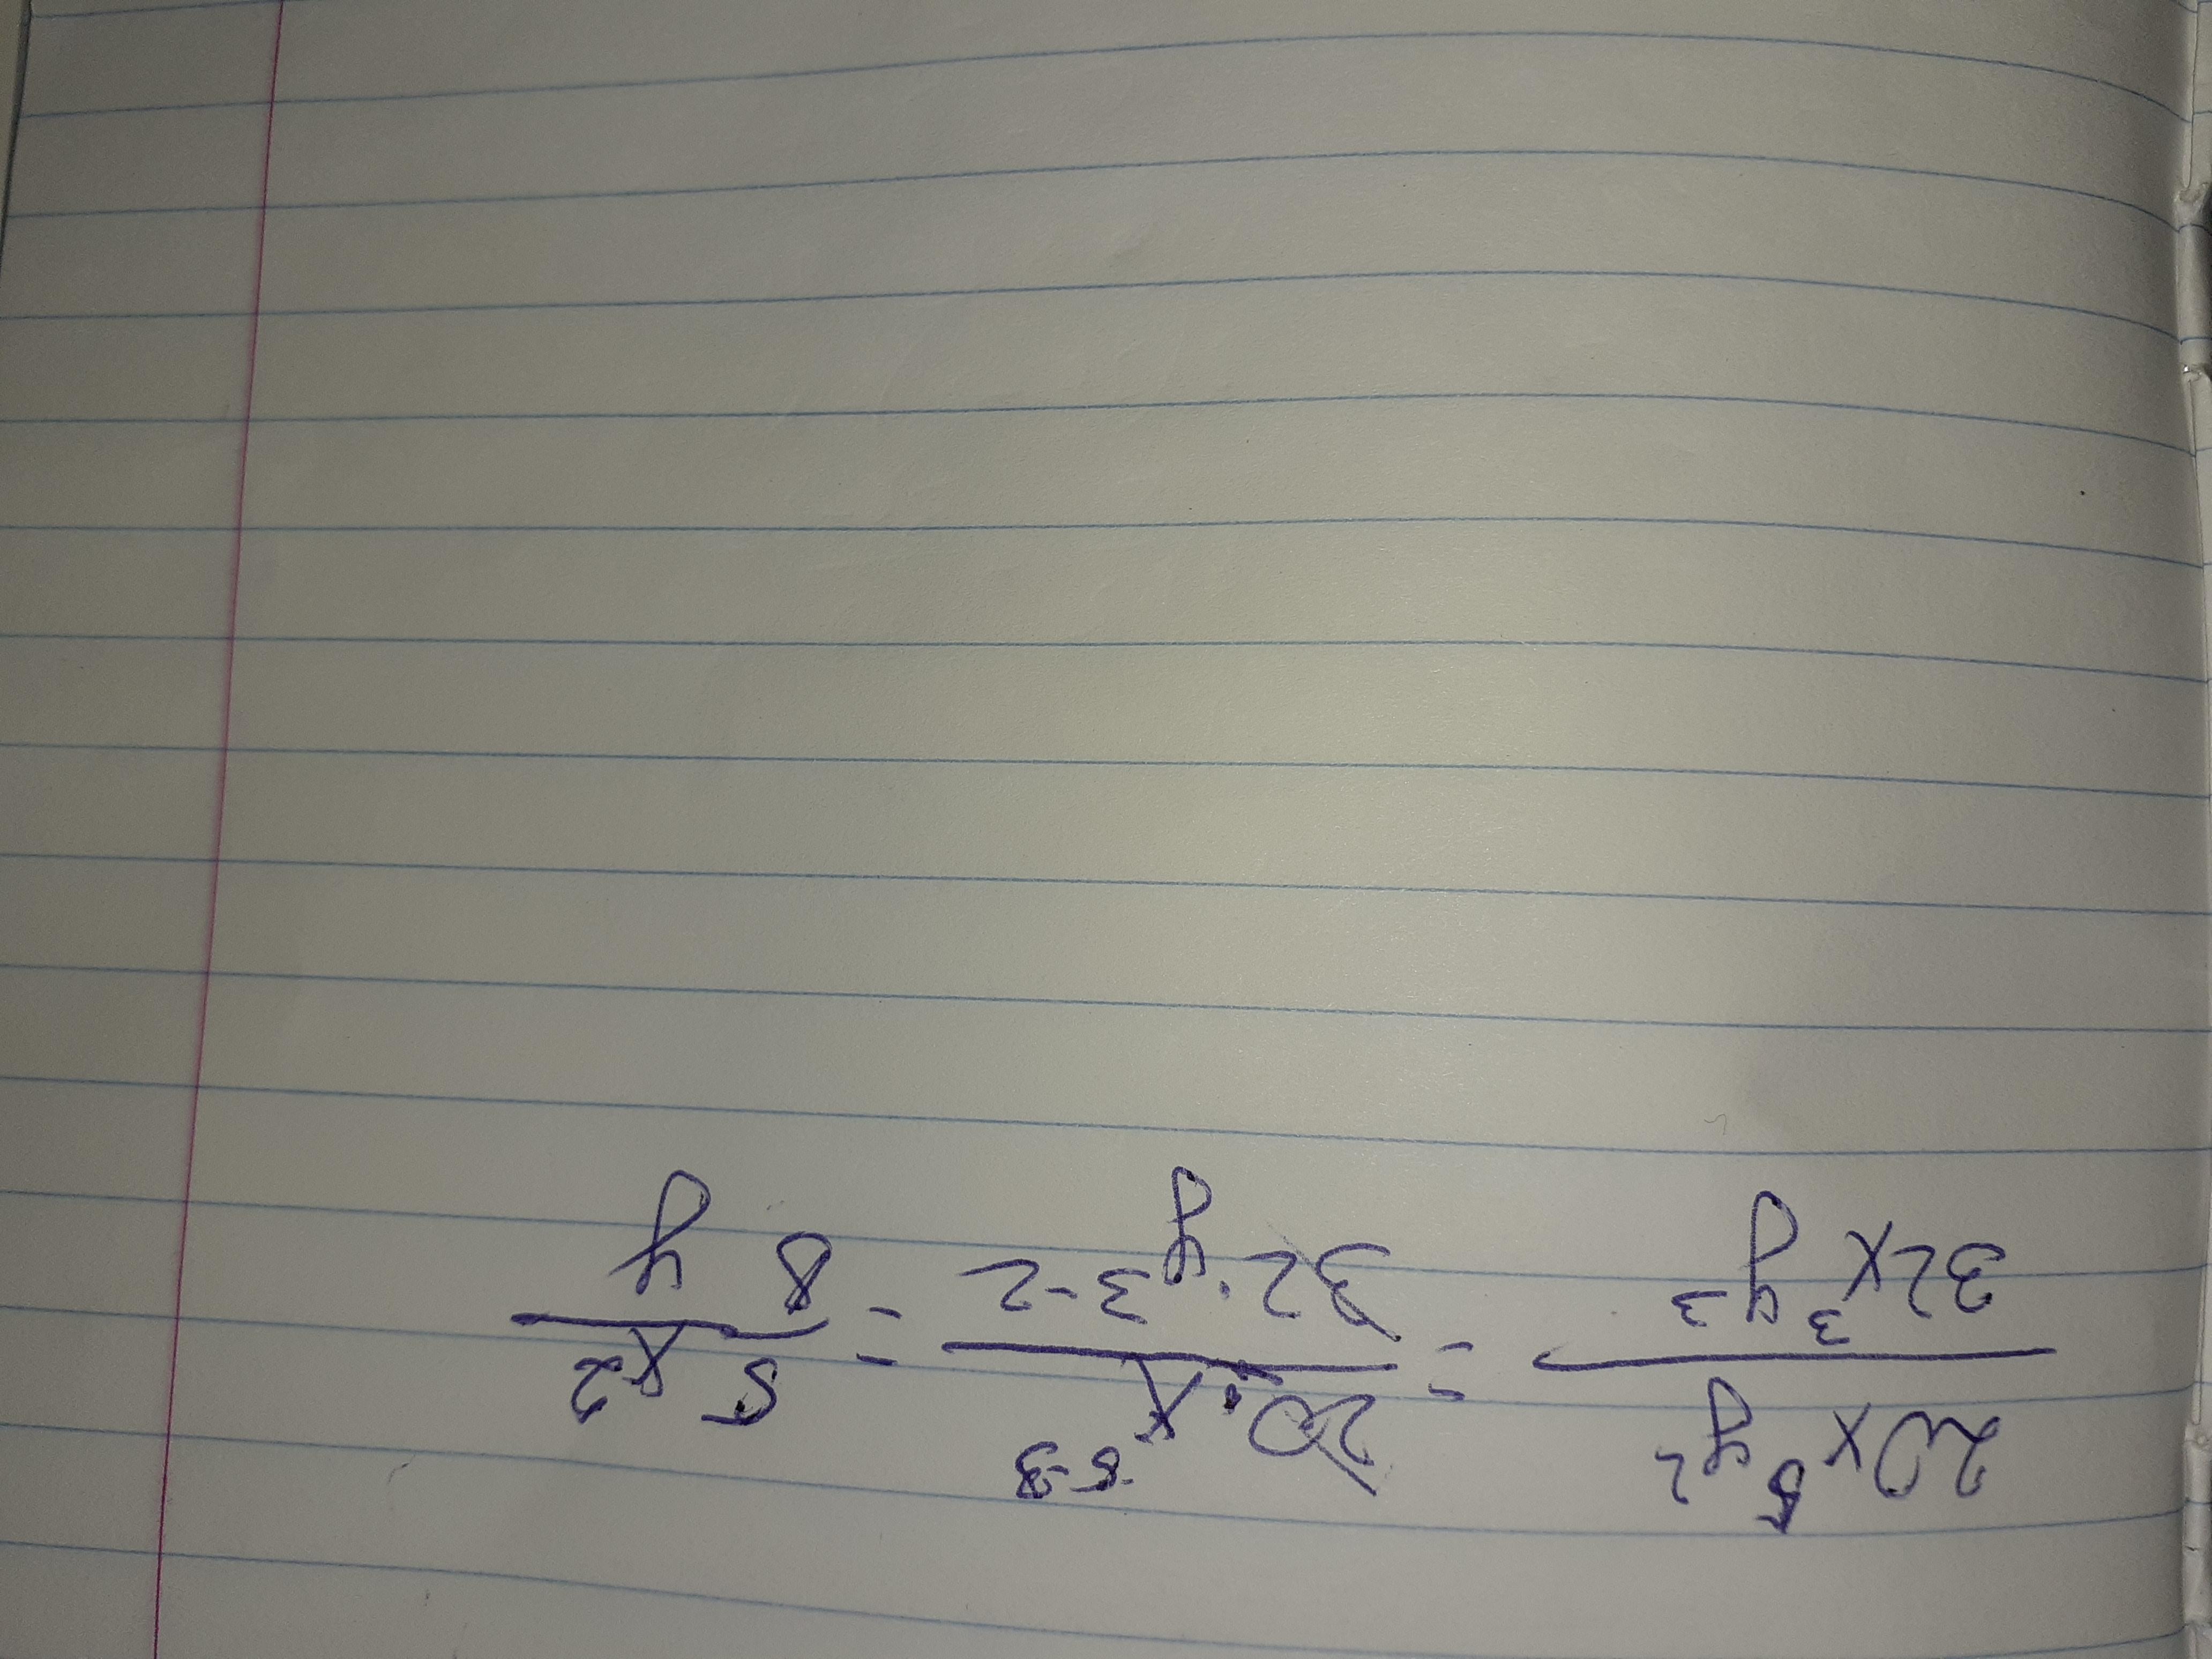 20x⁵y² / 32x³y³ = 20·x⁵⁻³ / 32·y³⁻² = 5x² / 8y